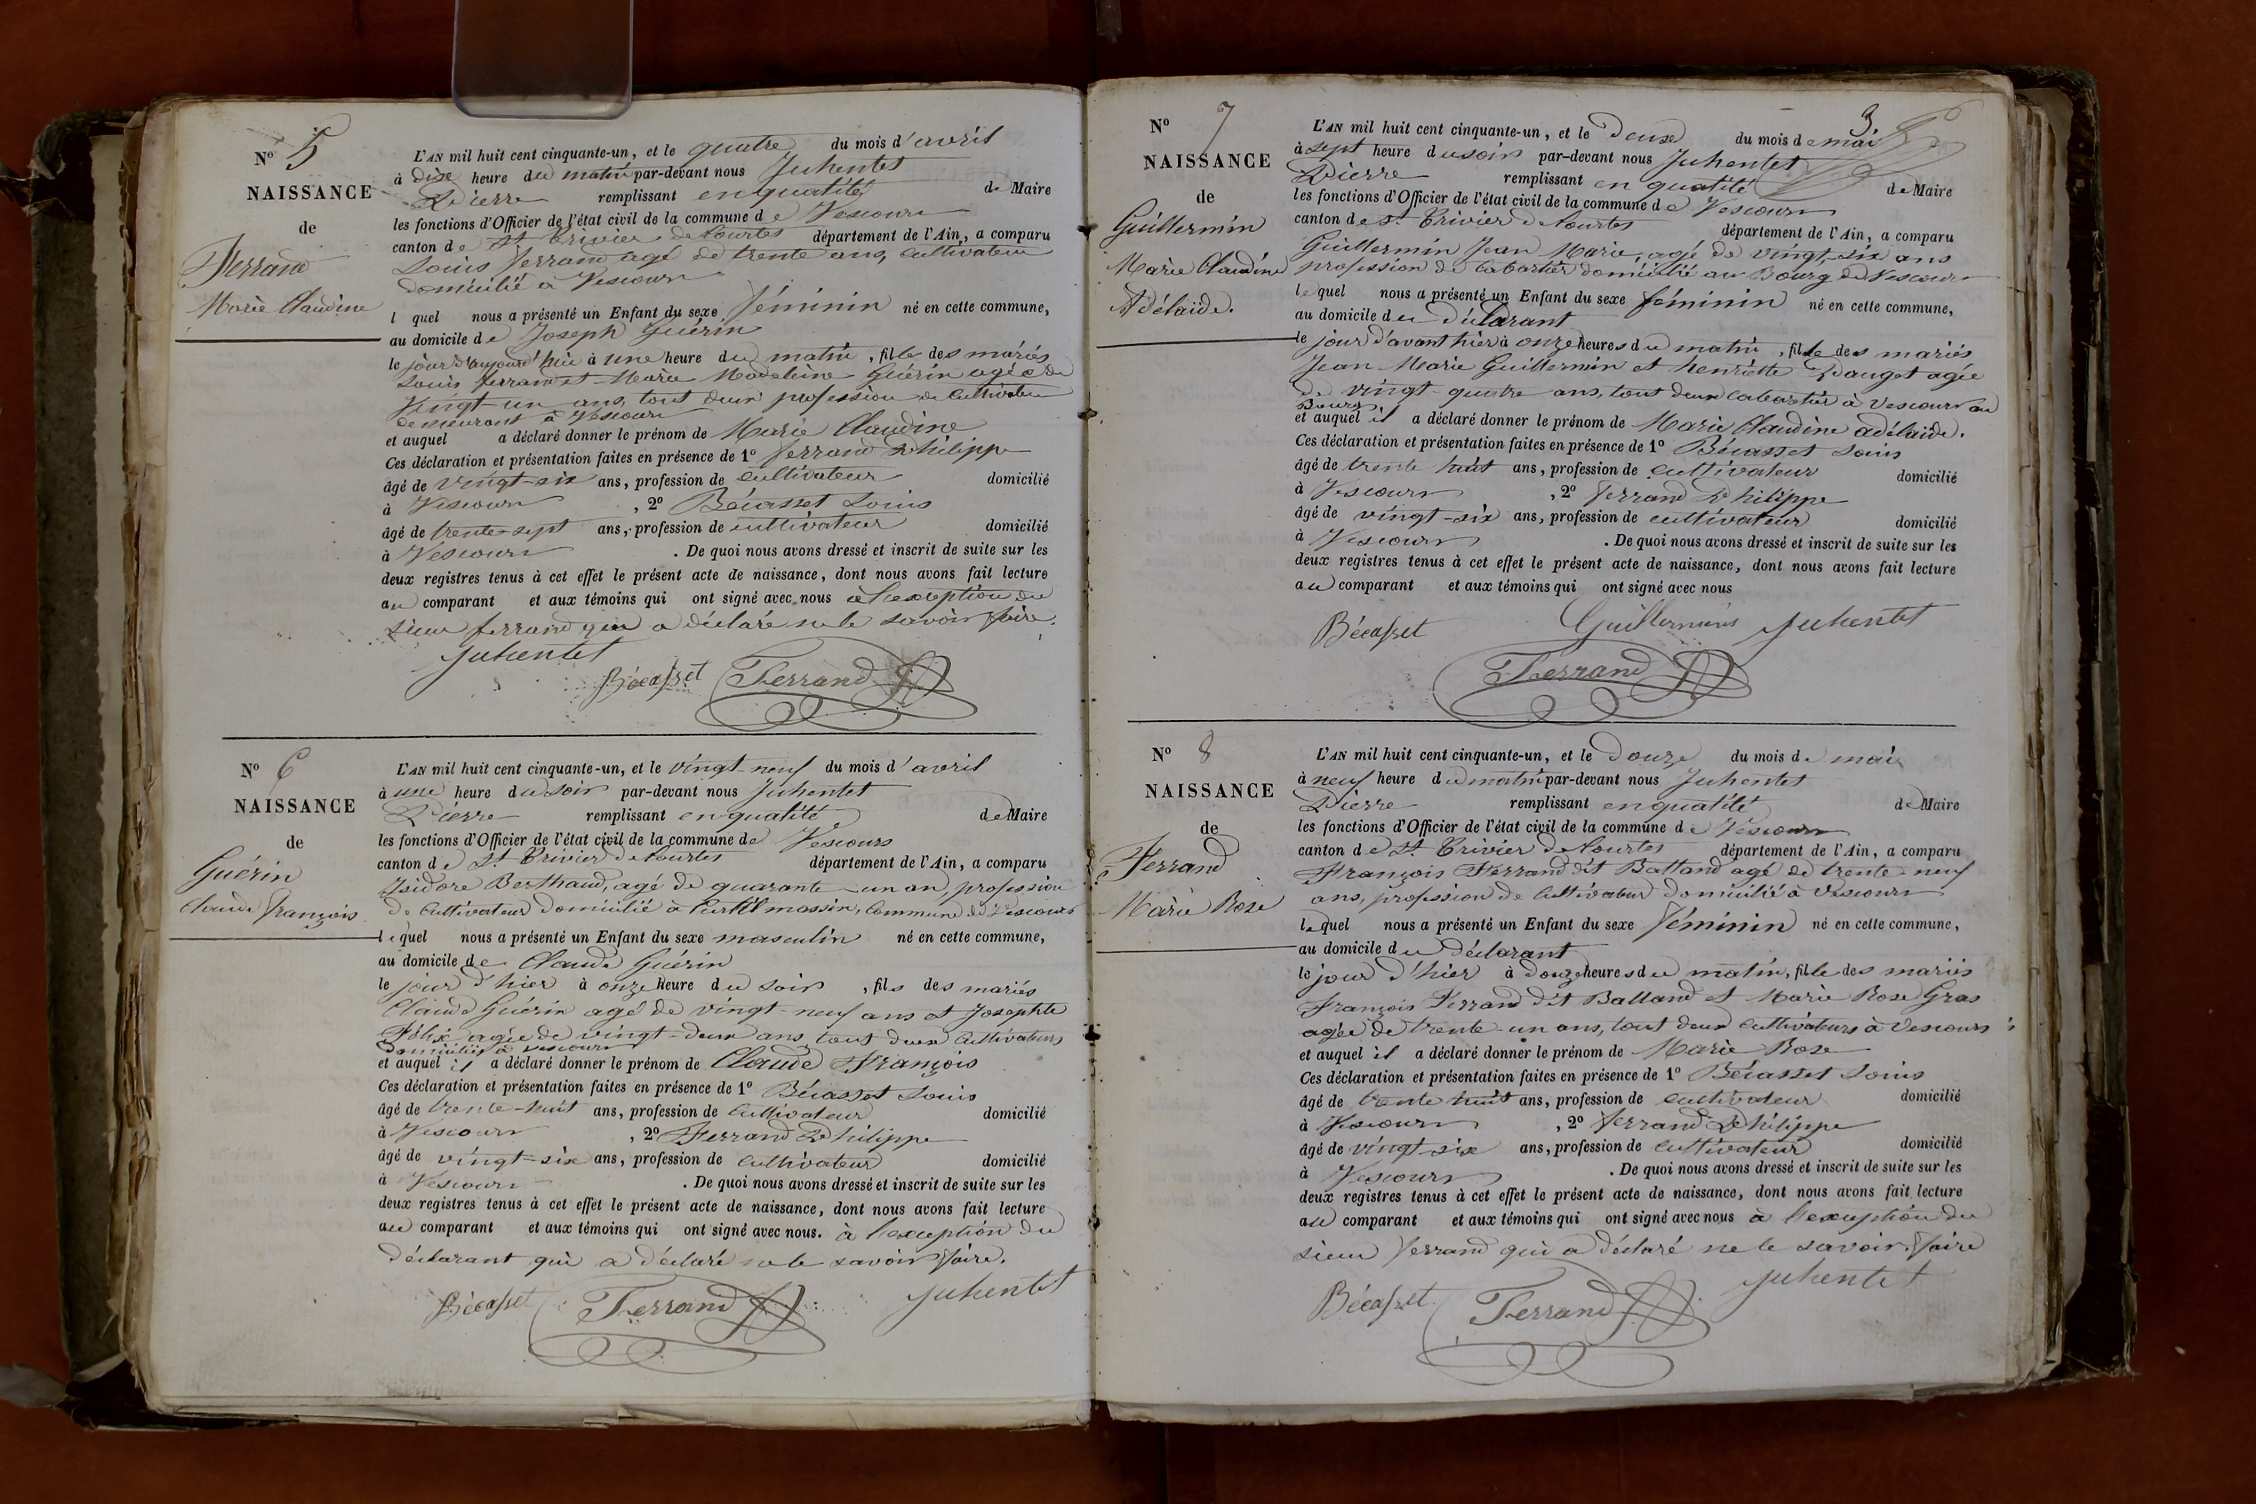 N° 5
NAISSANCE
de
Ferrand
Marie Claudine
L'AN mil huit cent cinquante-un, et le quatre du mois d'avril
à dix heure du matin par-devant nous Juhentet
Pierre remplissant en qualité de Maire
les fonctions d'Officier de l'état civil de la commune de Vescours
canton de St Trivier de Courtes département de l'Ain, a comparu
Louis Ferrand agé de trente ans, cultivateur
domicilié à Vescours
l quel nous a présenté un Enfant du sexe féminin né en cette commune,
au domicile de Joseph Guérin
le jour d'aujourd'hui à une heure du matin, fille des mariés
Louis ferrand et Marie Madeleine Guérin agée de
vingt un ans, tout deux profession de cultivateur
demeurant à Vescours
et auquel a déclaré donner le prénom de Marie Claudine
Ces déclaration et présentation faites en présence de 1° ferrand Philippe
âgé de vingt-six ans, profession de cultivateur domicilié
à Vescours, 2° Bécasset Louis
âgé de trente-sept ans, profession de cultivateur domicilié
à Vescours. De quoi nous avons dressé et inscrit de suite sur les
deux registres tenus à cet effet le présent acte de naissance, dont nous avons fait lecture
au comparant et aux témoins qui ont signé avec nous à l'exception du
sieur ferrand qui a déclaré ne le savoir faire.
Juhentet
Bécasset Ferrand
N° 6
NAISSANCE
de
Guérin
Claude françois
L'AN mil huit cent cinquante-un, et le vingt-neuf du mois d'avril
à une heure du soir par-devant nous Juhentet
Pierre remplissant en qualité de Maire
les fonctions d'Officier de l'état civil de la commune de Vescours
canton de St Trivier de Courtes département de l'Ain, a comparu
Isidore Berthaud, agé de quarante-un an, profession
de cultivateur domicilié à massin, commune de Vescours
lequel nous a présenté un Enfant du sexe masculin né en cette commune,
au domicile de Claude Guérin
le jour d'hier à onze heure du soir, fils des mariés
Claude Guérin agé de vingt-neuf ans et Josephte
Félix agée de vingt-deux ans, tout deux cultivateurs
domiciliés à Vescours
et auquel il a déclaré donner le prénom de Claude François
Ces déclaration et présentation faites en présence de 1° Bécasset Louis
âgé de trente-huit ans, profession de cultivateur domicilié
à Vescours, 2° Ferrand Philippe
âgé de vingt-six ans, profession de cultivateur domicilié
à Vescours. De quoi nous avons dressé et inscrit de suite sur les
deux registres tenus à cet effet le présent acte de naissance, dont nous avons fait lecture
au comparant et aux témoins qui ont signé avec nous. à l'exception du
déclarant qui a déclaré ne le savoir faire.
Bécasset Ferrand Juhentet
3
N° 7
NAISSANCE
de
Guillermin
Marie Claudine
Adélaide.
L'AN mil huit cent cinquante-un, et le deux du mois de mai
à sept heure du soir par-devant nous Juhentet
Pierre remplissant en qualité de Maire
les fonctions d'Officier de l'état civil de la commune de Vescours
canton de St Trivier de Courtes département de l'Ain, a comparu
Guillermin Jean Marie, agé de vingt-six ans
profession de cabartier domicilié au Bourg de Vescours
lequel nous a présenté un Enfant du sexe féminin né en cette commune,
au domicile du déclarant
le jour d'avant hier à onze heures du matin, fille des mariés
Jean-Marie Guillermin et henriette Pauget agée
de vingt-quatre ans, tout deux cabartier à Vescours au
Bourg
et auquel il a déclaré donner le prénom de Marie Claudine adélaide.
Ces déclaration et présentation faites en présence de 1° Bécasset Louis
âgé de trente huit ans, profession de cultivateur domicilié
à Vescours, 2° ferrand Philippe
âgé de vingt-six ans, profession de cultivateur domicilié
à Vescours. De quoi nous avons dressé et inscrit de suite sur les
deux registres tenus à cet effet le présent acte de naissance, dont nous avons fait lecture
au comparant et aux témoins qui ont signé avec nous
Bécasset Guillermin Juhentet
Ferrand
N° 8
NAISSANCE
de
Ferrand
Marie Rose
L'AN mil huit cent cinquante-un, et le douze du mois de mai
à neuf heure du matin par-devant nous Juhentet
Pierre remplissant en qualité de Maire
les fonctions d'Officier de l'état civil de la commune de Vescours
canton de St Trivier de Courtes département de l'Ain, a comparu
François Ferrand dit Balland agé de trente-neuf
ans, profession de cultivateur domicilié à Vescours
lequel nous a présenté un Enfant du sexe féminin né en cette commune,
au domicile du déclarant
le jour d'hier à douze heures du matin, fille des mariés
François Ferrand dit Balland et Marie Rose Gras
agée de trente-un ans, tout deux cultivateurs à Vescours
et auquel il a déclaré donner le prénom de Marie Rose
Ces déclaration et présentation faites en présence de 1° Bécasset Louis
âgé de trente huit ans, profession de cultivateur domicilié
à Vescours, 2° ferrand Philippe
âgé de vingt-six ans, profession de cultivateur domicilié
à Vescours. De quoi nous avons dressé et inscrit de suite sur les
deux registres tenus à cet effet le présent acte de naissance, dont nous avons fait lecture
au comparant et aux témoins qui ont signé avec nous à l'exception du
sieur ferrand qui a déclaré ne le savoir faire
Bécasset Ferrand Juhentet